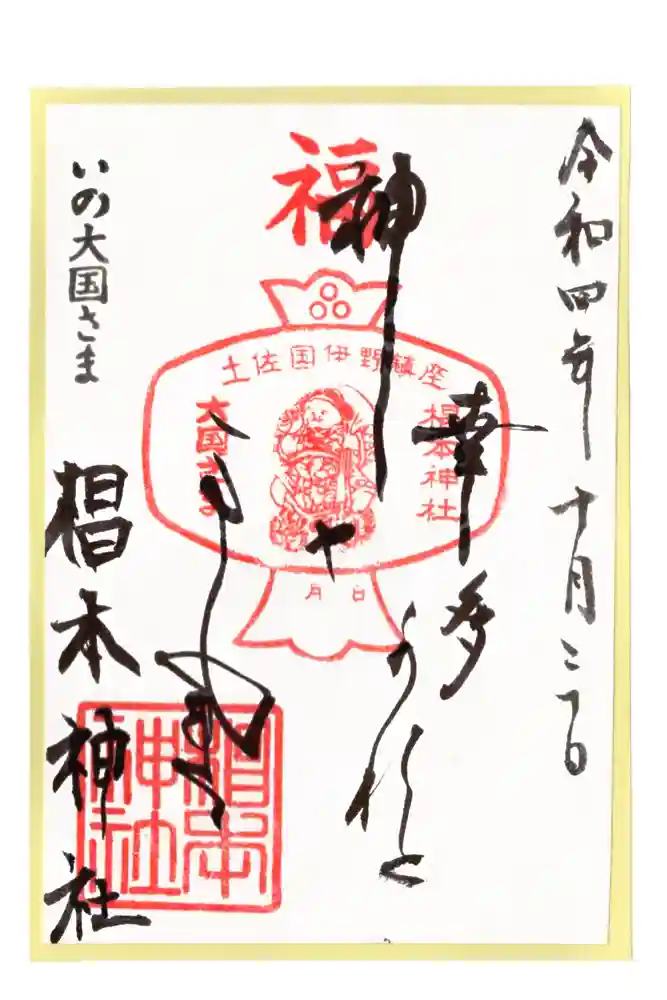 令和四年十月二十日
幸多かれと
神
福
土佐国伊野鎮座
椙本神社
大国さま
月 日
いの大国さま
椙本神社
椙本神社